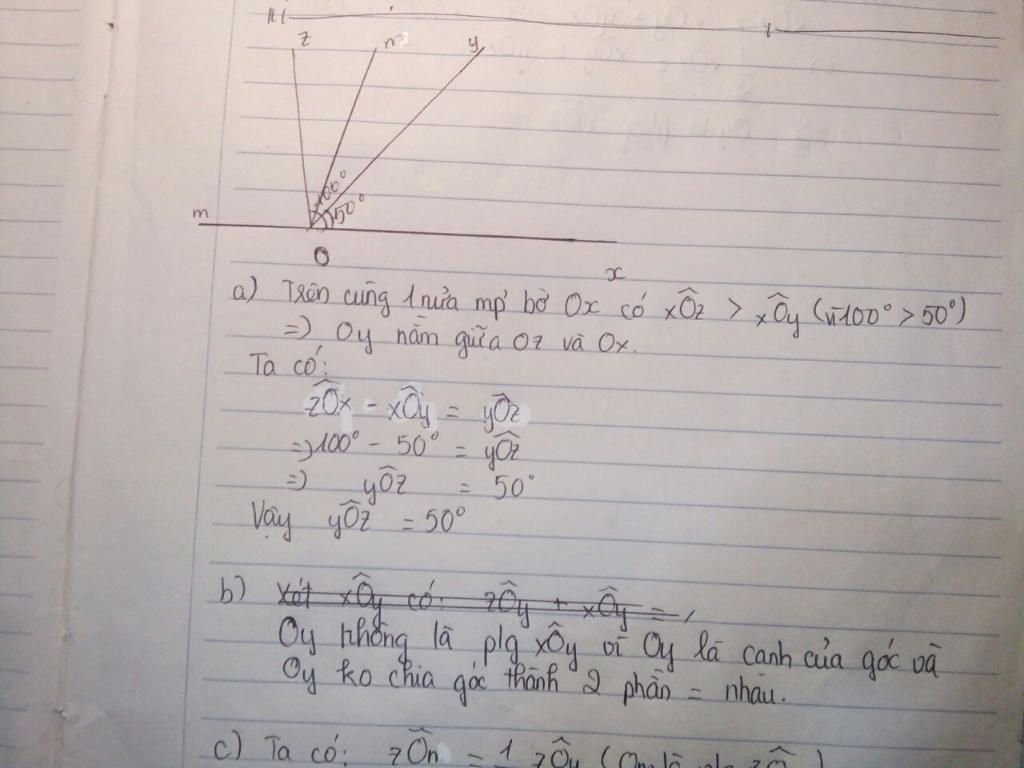 z n y
100°
50°
m
O
x
a) Trên cùng 1 nửa mp' bờ Ox có xÔz > xÔy (vì 100° > 50°)
=) Oy nằm giữa Oz và Ox.
Ta có:
zÔx - xÔy = yÔz
=) 100° - 50° = yÔz
=) yÔz = 50°
Vậy yÔz = 50°
b) Xét xÔy có: zÔy + xÔy =
Oy không là plg xÔy vì Oy là cạnh của góc và
Oy ko chia góc thành 2 phần = nhau.
c) Ta có: zÔn = 1 zÔy (On là plg zÔ